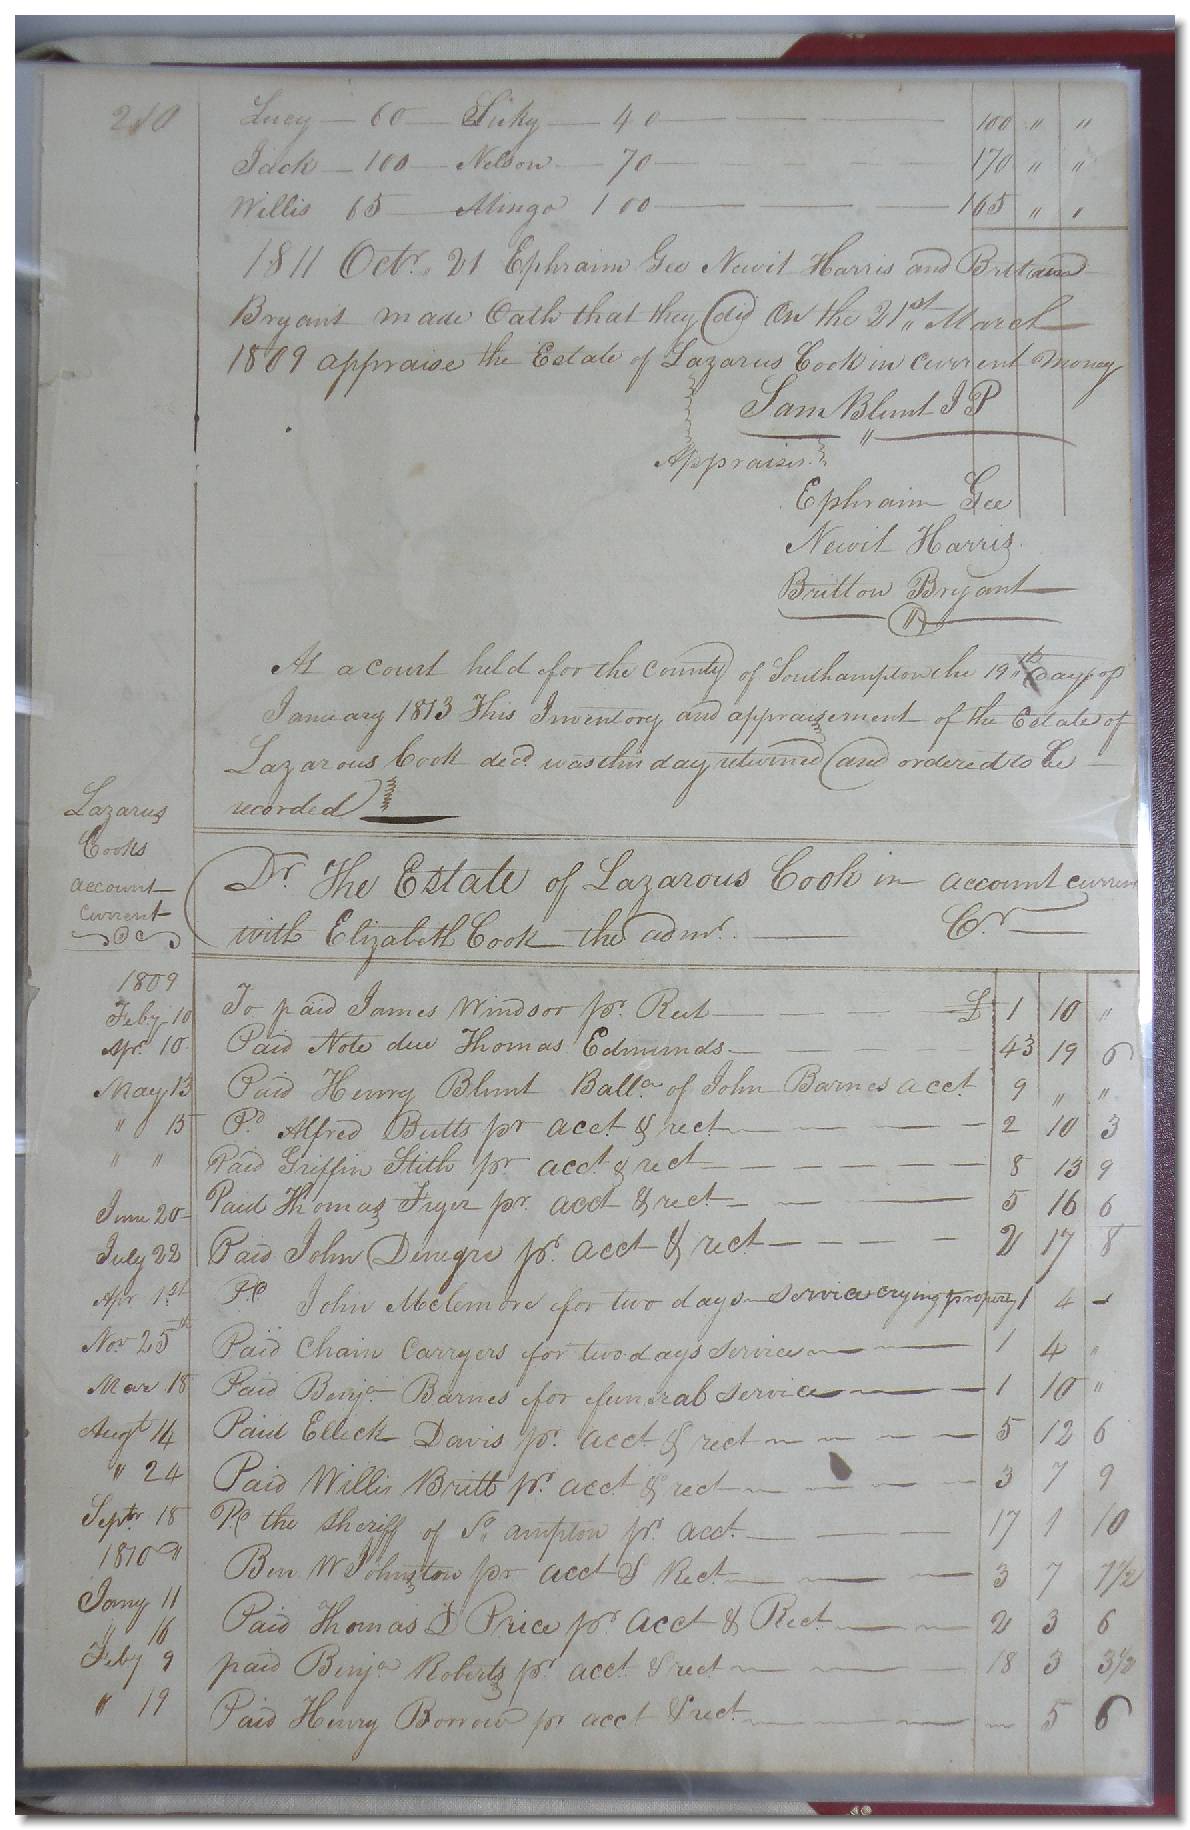 210
Lucy — 60 — Sicky — 40 — 100 " "
Jack — 100 — Nelson — 70 — 170 " "
Willis 65 — Mingo 100 — 165 " "
1811 Octr. 21 Ephraim Gee Newit Harris and Britain
Bryant made Oath that they did On the 21st March
1809 appraise the Estate of Lazarus Cook in current money
Sam Blunt J P
Appraisrs.
Ephraim Gee
Newit Harris
Britton Bryant
At a court held for the county of Southampton the 19th day of
January 1813 This Inventory and appraisement of the Estate of
Lazarous Cook decd. was this day returned and ordered to be
recorded
Lazarus
Cooks
account
current
Dr. The Estate of Lazarous Cook in account current
with Elizabeth Cook the admr. — Cr.
1809
Feby 10 To paid James Windsor pr. Rect — £ 1 10 "
Apr. 10 Paid Note due Thomas Edmunds — 43 19 6
May 13 Paid Henry Blunt Balla. of John Barnes acct 9 " "
" 15 Pd. Alfred Butts pr acct & rect — 2 10 3
" " Paid Griffin Stith pr acct & rect — 8 13 9
June 20 Paid Thomas Fryer pr. acct & rect — 5 16 6
July 22 Paid John Denegre pr. acct & rect — 2 17 8
Apr 1st Pd John Mclemore for two days service crying property 1 4 -
Nov 25th Paid Chain Carryers for two days service — 1 4 "
Mar 18 Paid Benja Barnes for funeral service — 1 10 "
Augt 14 Paid Eleck Davis pr. acct & rect — 5 12 6
" 24 Paid Willis Britt pr. acct. & rect — 3 7 9
Septr 18 Pd the Sheriff of So ampton pr. acct. — 17 1 10
1810
Jany 11 Ben W Johnston pr acct & Rect — 3 7 7½
" 16 Paid Thomas D Price pr. acct & Rect — 2 3 6
Feby 9 paid Benja Roberts pr. acct. & rect — 18 3 3½
" 19 Paid Henry Borrow pr acct & rect — 5 6